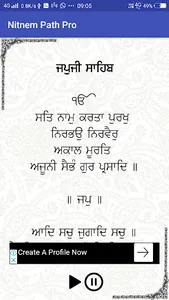 4G 0.8K/s 92% 09:05
Nitnem Path Pro
ਜਪੁਜੀ ਸਾਹਿਬ
ੴ
ਸਤਿ ਨਾਮੁ ਕਰਤਾ ਪੁਰਖੁ
ਨਿਰਭਉ ਨਿਰਵੈਰੁ
ਅਕਾਲ ਮੂਰਤਿ
ਅਜੂਨੀ ਸੈਭੰ ਗੁਰ ਪ੍ਰਸਾਦਿ ॥
॥ ਜਪੁ ॥
ਆਦਿ ਸਚੁ ਜੁਗਾਦਿ ਸਚੁ ॥
Create A Profile Now